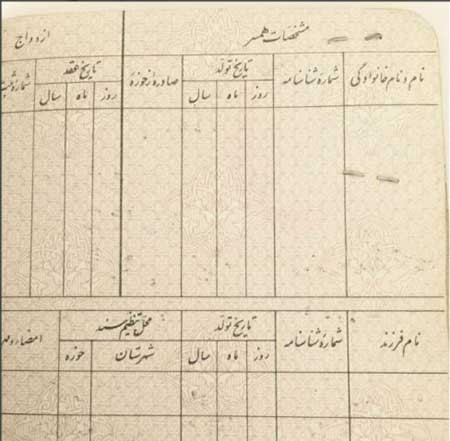 مشخصات همسر ازدواج
نام و نام خانوادگی شمارهٔ شناسنامه تاریخ تولد صادره از حوزهٔ تاریخ عقد
روز ماه سال روز ماه سال
نام فرزند شمارهٔ شناسنامه تاریخ تولد محل تنظیم سند
روز ماه سال شهرستان حوزه